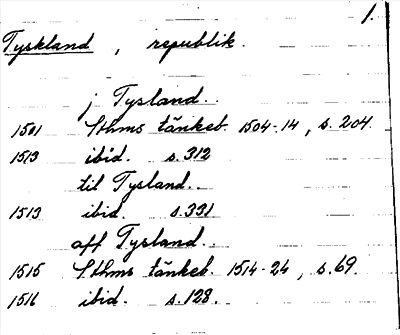 1.
Tyskland, republik.
j Tysland.
1501 Sthms tänkeb. 1504-14, s. 204.
1513 ibid. s. 312
til Tysland.
1513 ibid. s. 331
aff Tysland.
1515 Sthms tänkeb. 1514-24, s. 69.
1516 ibid. s. 128.